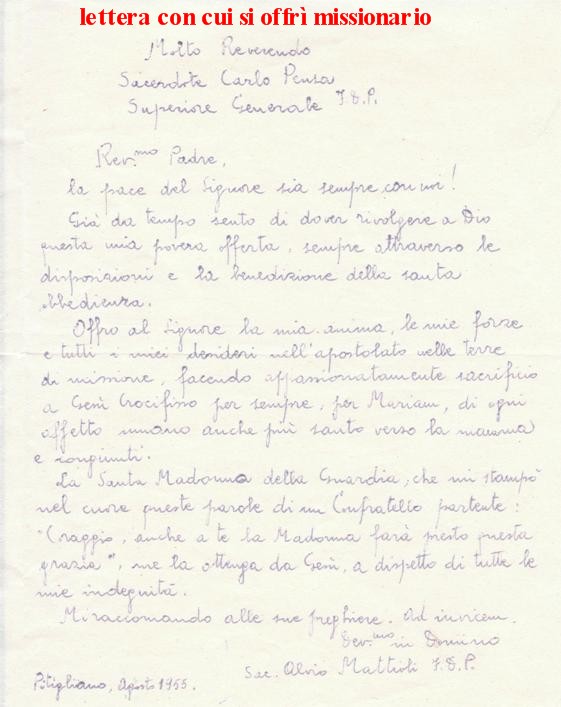 lettera con cui si offrì missionario
Molto Reverendo
Sacerdote Carlo Pensa
Superiore Generale F.D.P.
Rev.mo Padre,
la pace del Signore sia sempre con noi!
Già da tempo sento di dover rivolgere a Dio
questa mia povera offerta, sempre attraverso le
disposizioni e la benedizione della santa
obbedienza.
Offro al Signore la mia anima, le mie forze
e tutti i miei desideri nell'apostolato nelle terre
di missione, facendo appassionatamente sacrificio
a Gesù Crocifisso per sempre, per Mariam, di ogni
affetto umano anche più santo verso la mamma
e congiunti.
La Santa Madonna della Guardia, che mi stampò
nel cuore queste parole di un Confratello partente:
"Coraggio, anche a te la Madonna farà presto questa
grazia", me la ottenga da Gesù, a dispetto di tutte le
mie indegnità.
Mi raccomando alle sue preghiere. Ad invicem.
Dev.mo in Domino
Sac. Alvio Mattioli F.D.P.
Pitigliano, Agosto 1955.